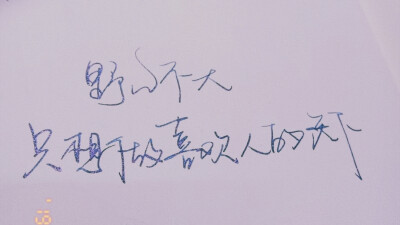 野心不大
只想做喜欢人的天下